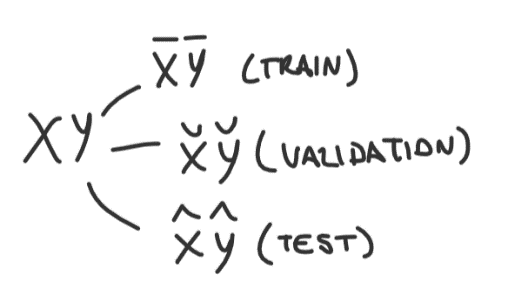 X̄ ȳ (TRAIN)
X y
X̆ y̆ (VALIDATION)
X̂ ŷ (TEST)